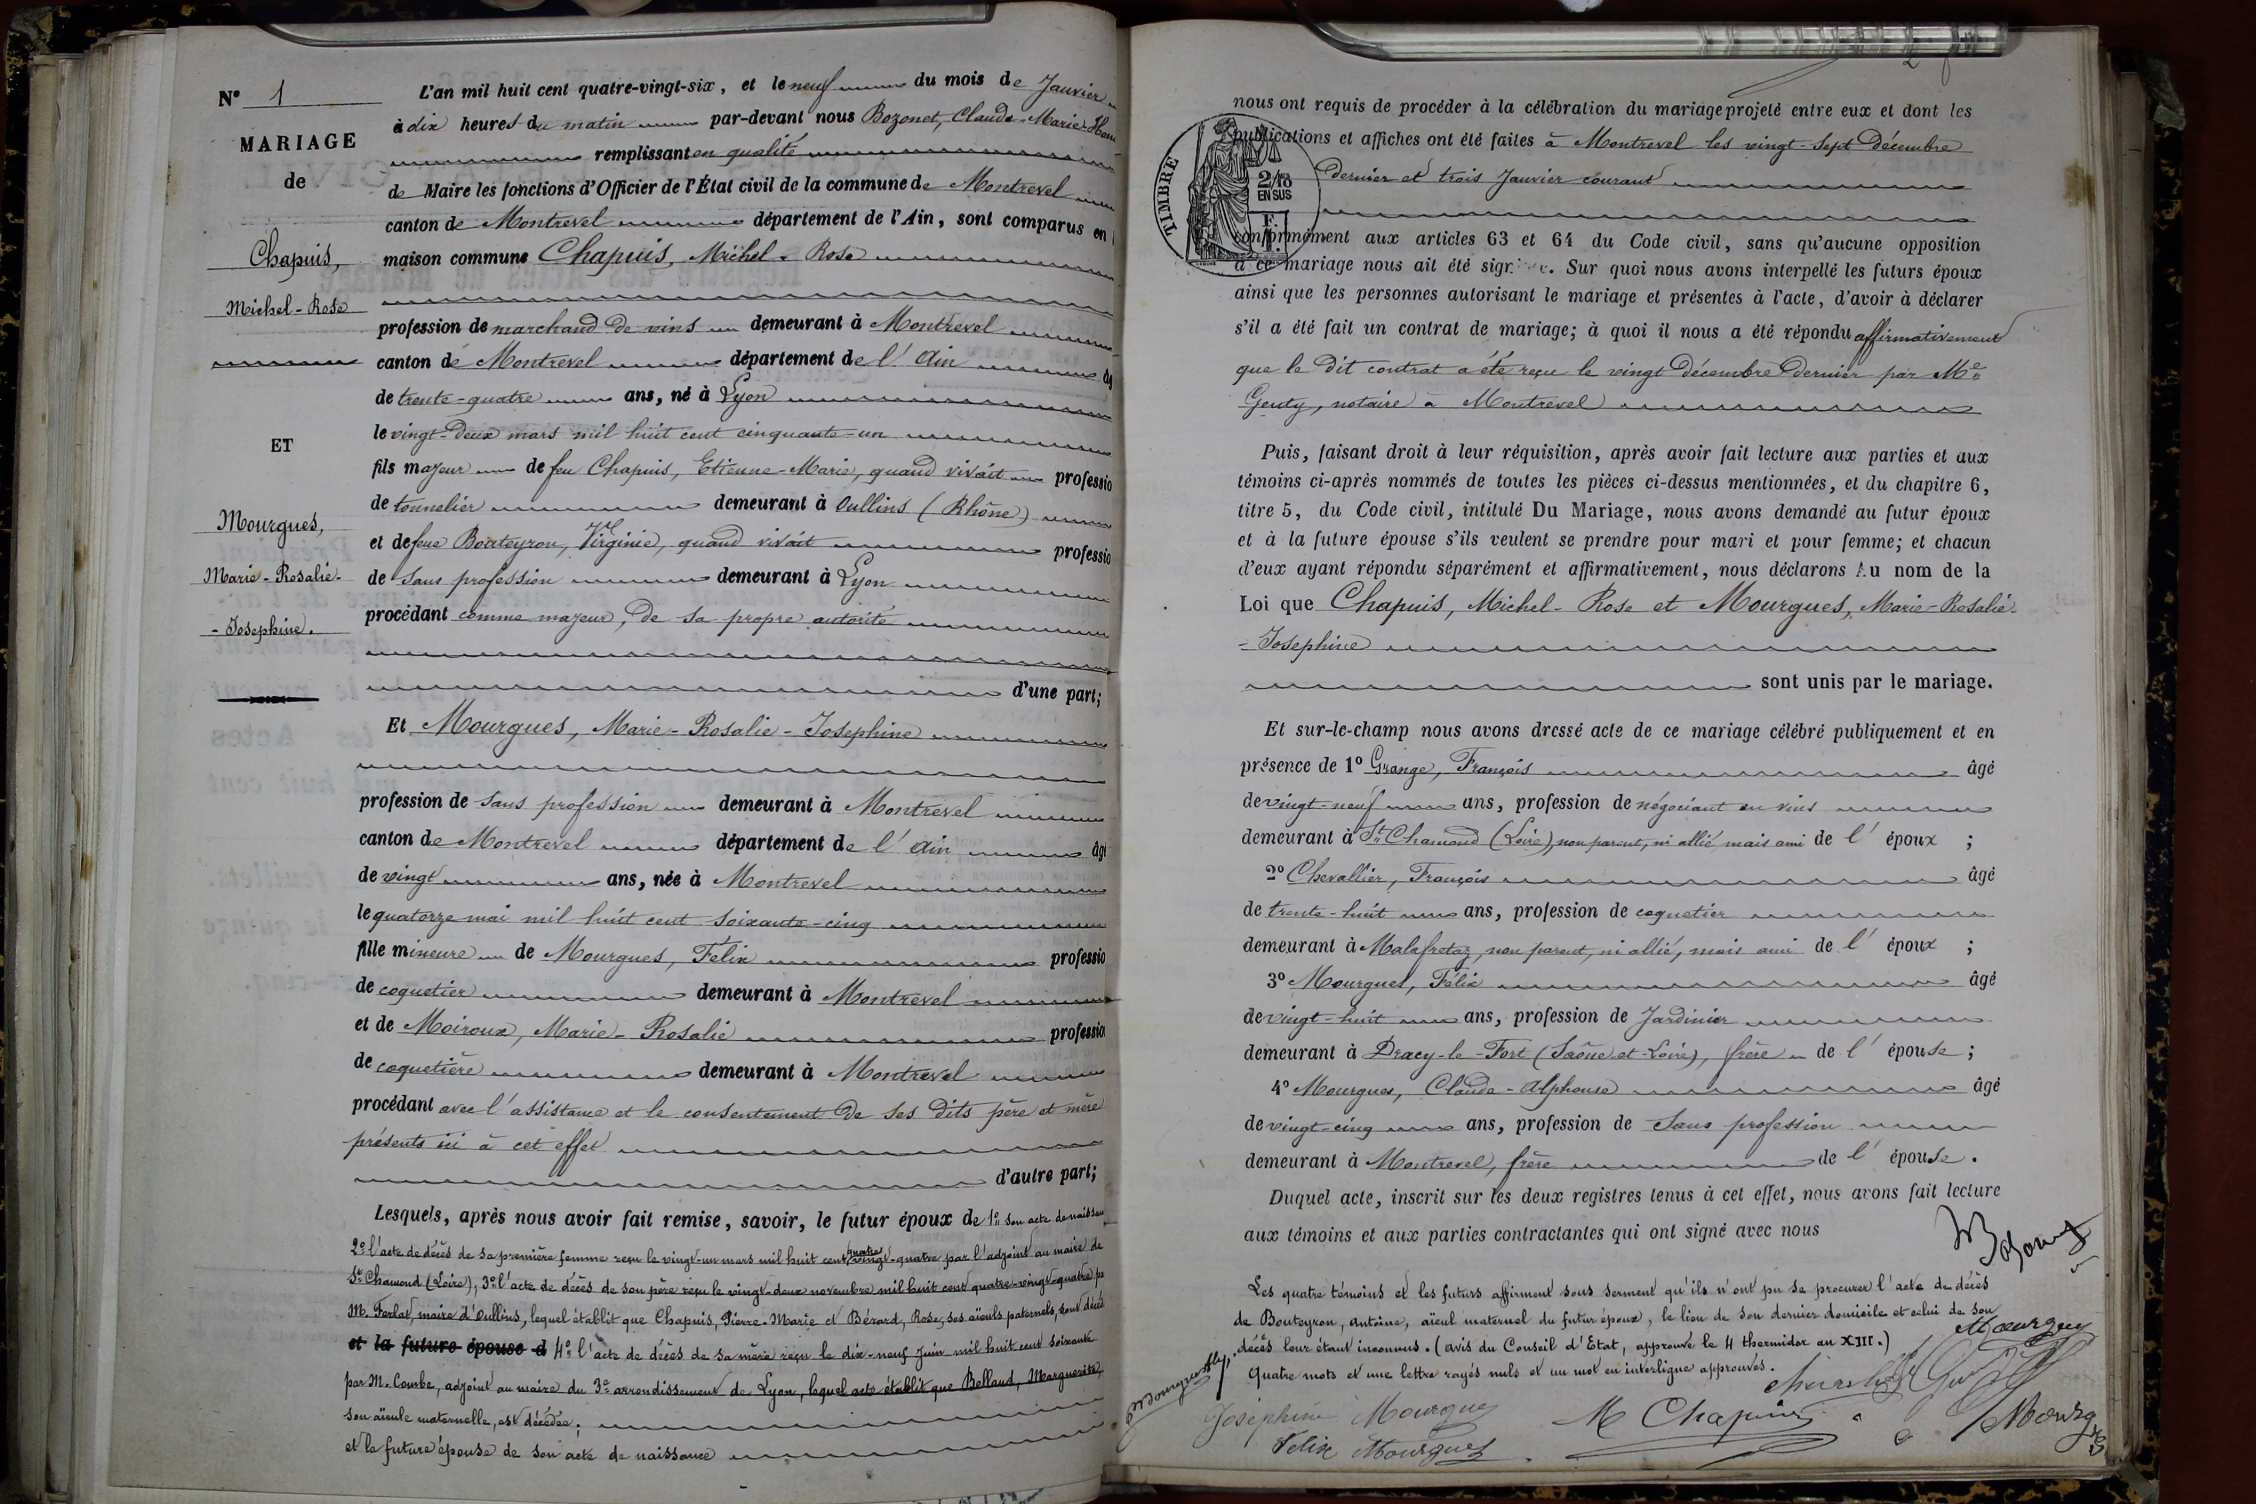 N° 1
MARIAGE
de
Chapuis,
Michel-Rose
ET
Mourgues,
Marie-Rosalie-
-Josephine.
L'an mil huit cent quatre-vingt-six, et le neuf du mois de Janvier
à dix heures du matin par-devant nous Bozonet, Claude-Marie-Henri
remplissant en qualité
de Maire les fonctions d'Officier de l'État civil de la commune de Montrevel
canton de Montrevel département de l'Ain, sont comparus en
maison commune Chapuis, Michel-Rose
profession de marchand de vins demeurant à Montrevel
canton de Montrevel département de l'Ain âg
de trente-quatre ans, né à Lyon
le vingt-deux mars mil huit cent cinquante-un
fils majeur de feu Chapuis, Etienne-Marie, quand vivait professio
de tonnelier demeurant à Oullins (Rhône)
et de feue Bouteyron, Virginie, quand vivait professio
de sans profession demeurant à Lyon
procédant comme majeur, de sa propre autorité
d'une part;
Et Mourgues, Marie-Rosalie-Josephine
profession de sans profession demeurant à Montrevel
canton de Montrevel département de l'Ain âgé
de vingt ans, née à Montrevel
le quatorze mai mil huit cent soixante-cinq
fille mineure de Mourgues, Félix professio
de coquetier demeurant à Montrevel
et de Moiroux, Marie-Rosalie profession
de coquetière demeurant à Montrevel
procédant avec l'assistance et le consentement de ses dits père et mère
présents ici à cet effet
d'autre part;
Lesquels, après nous avoir fait remise, savoir, le futur époux de 1° son acte de naissan
2° l'acte de décès de sa première femme reçu le vingt-un mars mil huit cent quatre vingt-quatre par l'adjoint au maire de
St Chamond (Loire), 3° l'acte de décès de son père reçu le vingt-deux novembre mil huit cent quatre-vingt-quatre pa
M. Ferlat, maire d'Oullins, lequel établit que Chapuis, Pierre-Marie et Bérard, Rose, ses aïeuls paternels, sont décéd
et la future épouse d 4° l'acte de décès de sa mère reçu le dix-neuf Juin mil huit cent soixante
par M. Combe, adjoint au maire du 3e arrondissement de Lyon, lequel acte établit que Belland, Marguerite,
son aïeule maternelle, est décédée;
et la future épouse de son acte de naissance
2
nous ont requis de procéder à la célébration du mariage projeté entre eux et dont les
publications et affiches ont été faites à Montrevel les vingt-sept décembre
dernier et trois Janvier courant
TIMBRE
2/10
EN SUS
F.
conformément aux articles 63 et 64 du Code civil, sans qu'aucune opposition
à ce mariage nous ait été sign. Sur quoi nous avons interpellé les futurs époux
ainsi que les personnes autorisant le mariage et présentes à l'acte, d'avoir à déclarer
s'il a été fait un contrat de mariage; à quoi il nous a été répondu affirmativement
que le dit contrat a été reçu le vingt décembre dernier par Me
Genty, notaire à Montrevel
Puis, faisant droit à leur réquisition, après avoir fait lecture aux parties et aux
témoins ci-après nommés de toutes les pièces ci-dessus mentionnées, et du chapitre 6,
titre 5, du Code civil, intitulé Du Mariage, nous avons demandé au futur époux
et à la future épouse s'ils veulent se prendre pour mari et pour femme; et chacun
d'eux ayant répondu séparément et affirmativement, nous déclarons Au nom de la
Loi que Chapuis, Michel-Rose et Mourgues, Marie-Rosalie-
-Josephine
sont unis par le mariage.
Et sur-le-champ nous avons dressé acte de ce mariage célébré publiquement et en
présence de 1° Grange, François âgé
de vingt-neuf ans, profession de négociant en vins
demeurant à St Chamond (Loire), non parent, ni allié mais ami de l'époux;
2° Chevallier, François âgé
de trente-huit ans, profession de coquetier
demeurant à Malafretaz, non parent, ni allié, mais ami de l'époux;
3° Mourgues, Félix âgé
de vingt-huit ans, profession de Jardinier
demeurant à Dracy-le-Fort (Saône-et-Loire), frère de l'épouse;
4° Mourgues, Claude-Alphonse âgé
de vingt-cinq ans, profession de sans profession
demeurant à Montrevel, frère de l'épouse.
Duquel acte, inscrit sur les deux registres tenus à cet effet, nous avons fait lecture
aux témoins et aux parties contractantes qui ont signé avec nous
Les quatre témoins et les futurs affirment sous serment qu'ils n'ont pu se procurer l'acte de décès
de Bouteyron, Antoine, aïeul maternel du futur époux, le lieu de son dernier domicile et celui de son
décès leur étant inconnus. (avis du Conseil d'Etat, approuvé le 4 thermidor an XIII.)
Quatre mots et une lettre rayés nuls et un mot en interligne approuvés.
Mourgues
Joséphine Mourgues
M Chapuis
Mourgues
Felix Mourgues